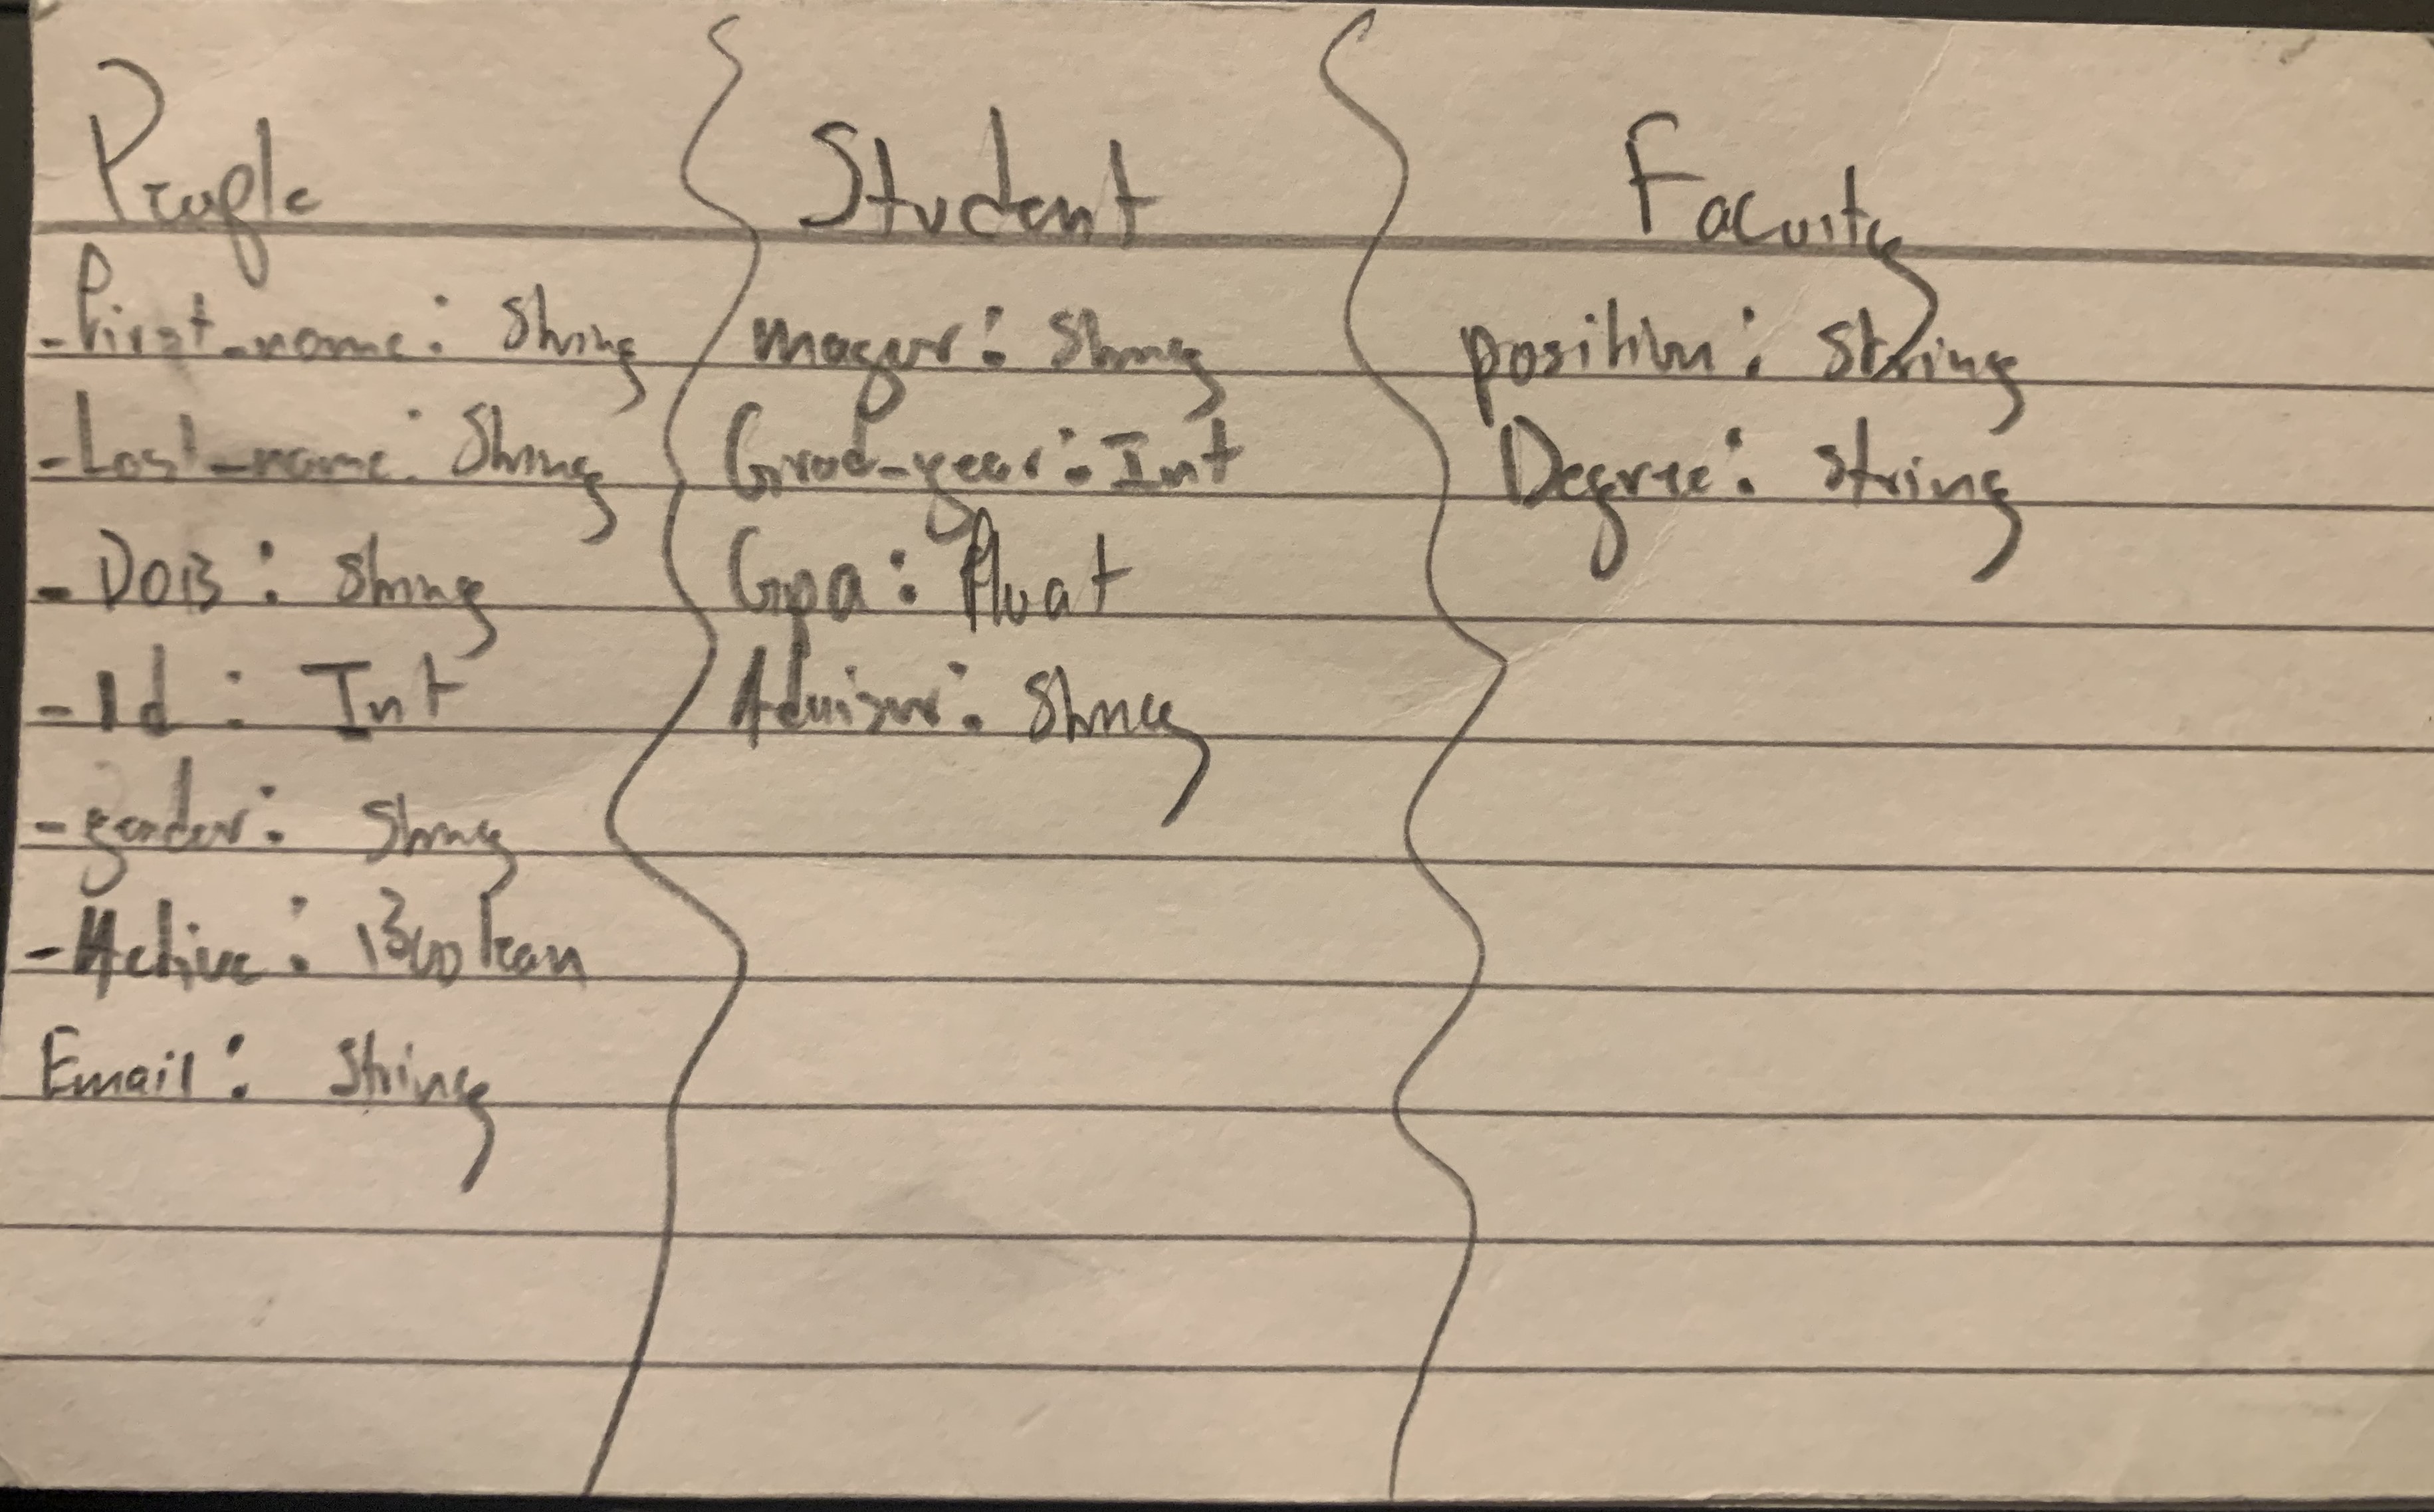 People
- first_name: String
- Last_name: String
- DOB: String
- Id: Int
- gender: String
- Active: Boolean
Email: String
Student
mayor: String
Grad-year: Int
Gpa: float
Advisor: String
Faculty
position: String
Degree: String